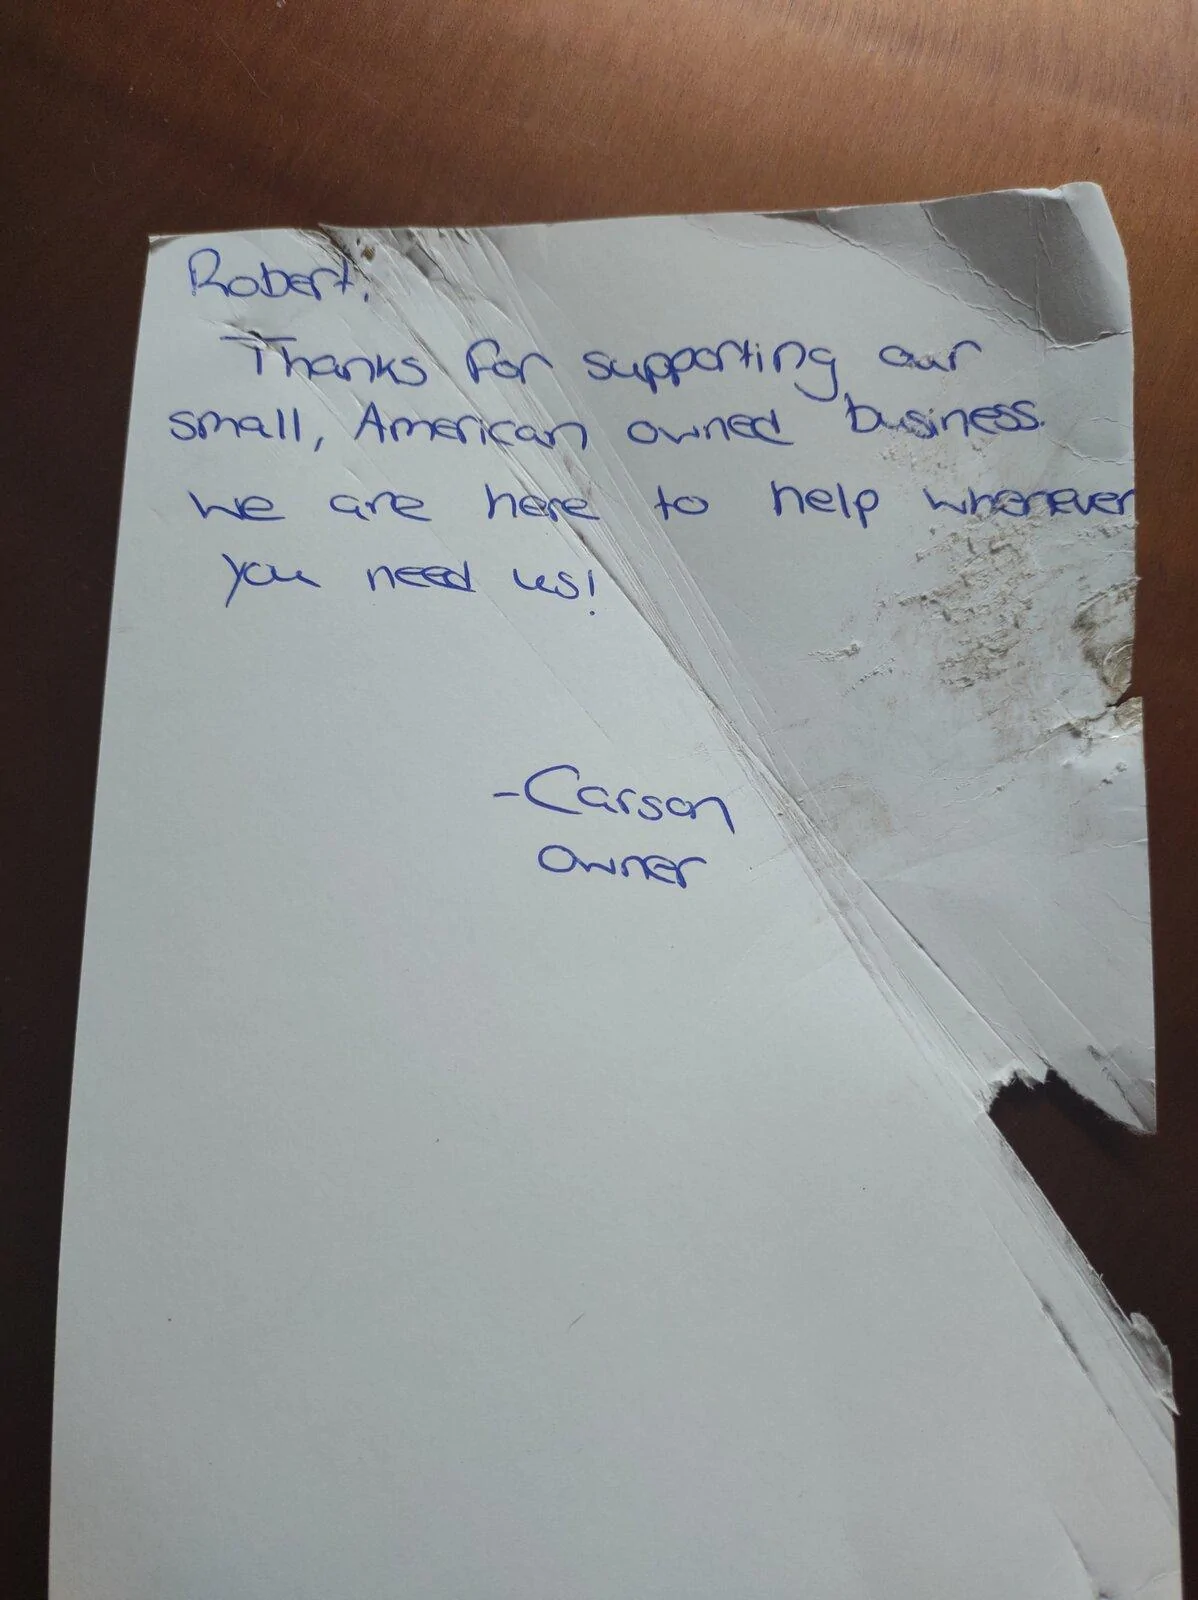 Robert,
Thanks for supporting our
small, American owned business.
We are here to help whenever
you need us!
-Carson
owner